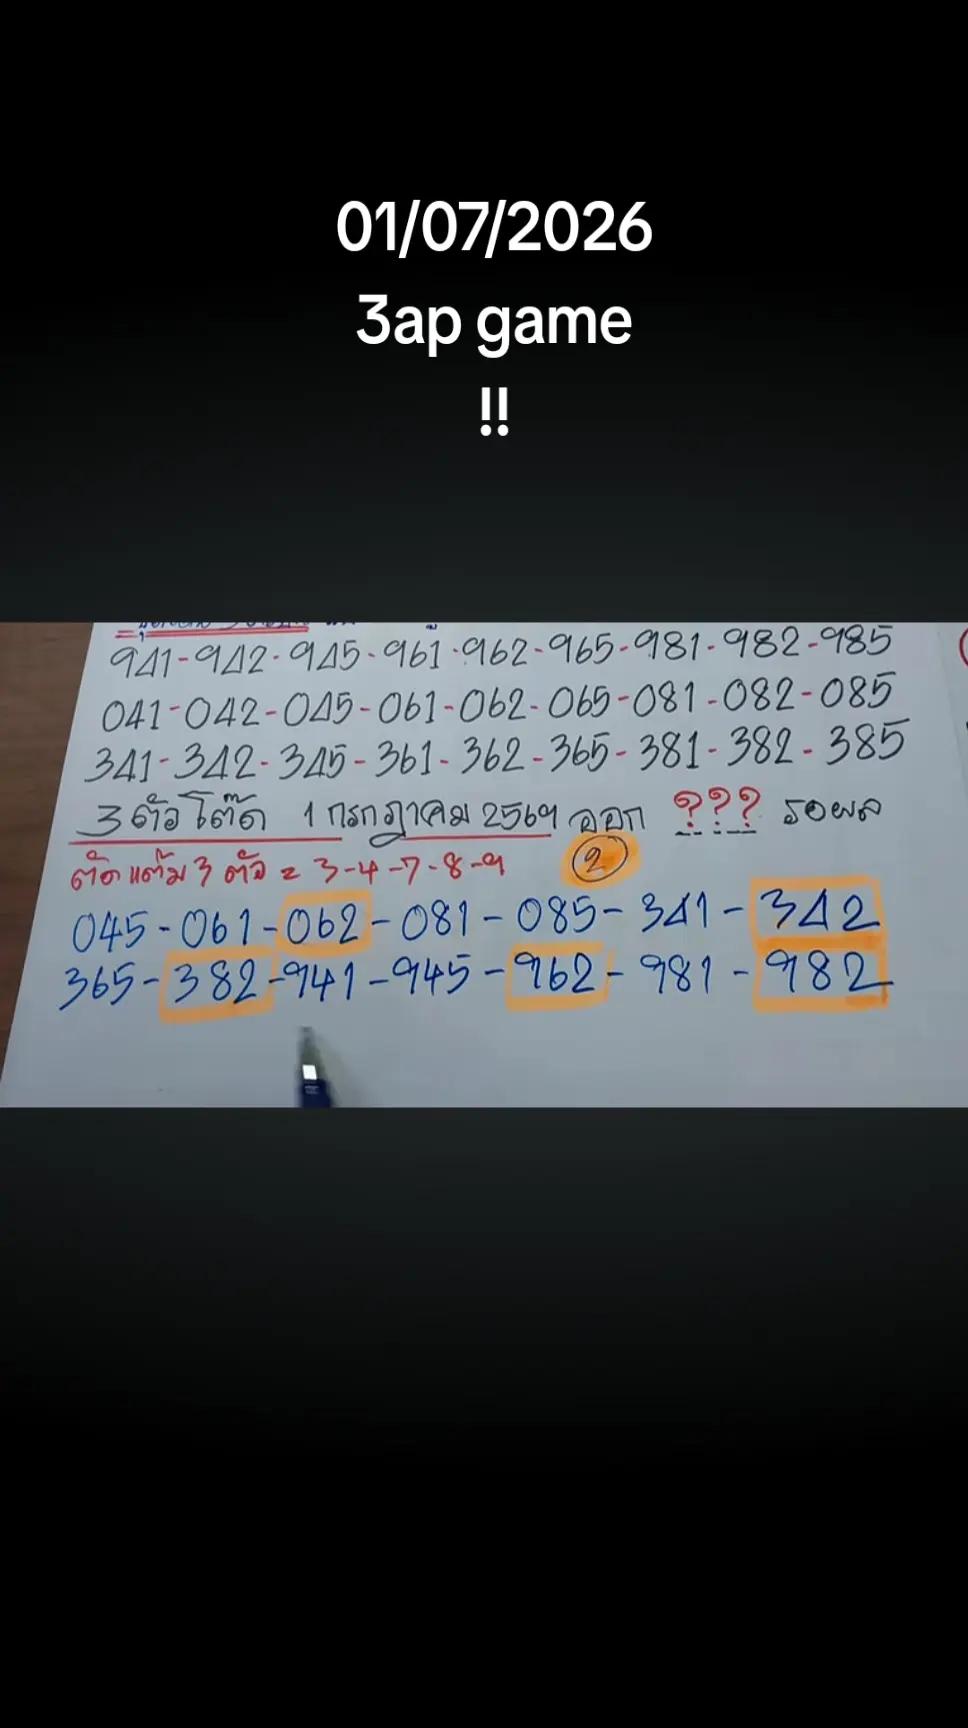 01/07/2026
3ap game
!!
941-942-945-961-962-965-981-982-985
041-042-045-061-062-065-081-082-085
341-342-345-361-362-365-381-382-385
3 ตัวโต๊ด 1 กรกฎาคม 2569 ออก ??? รอผล
ตัดแต้ม 3 ตัว = 3-4-7-8-9 2
045-061-062-081-085-341-342
365-382-941-945-962-981-982